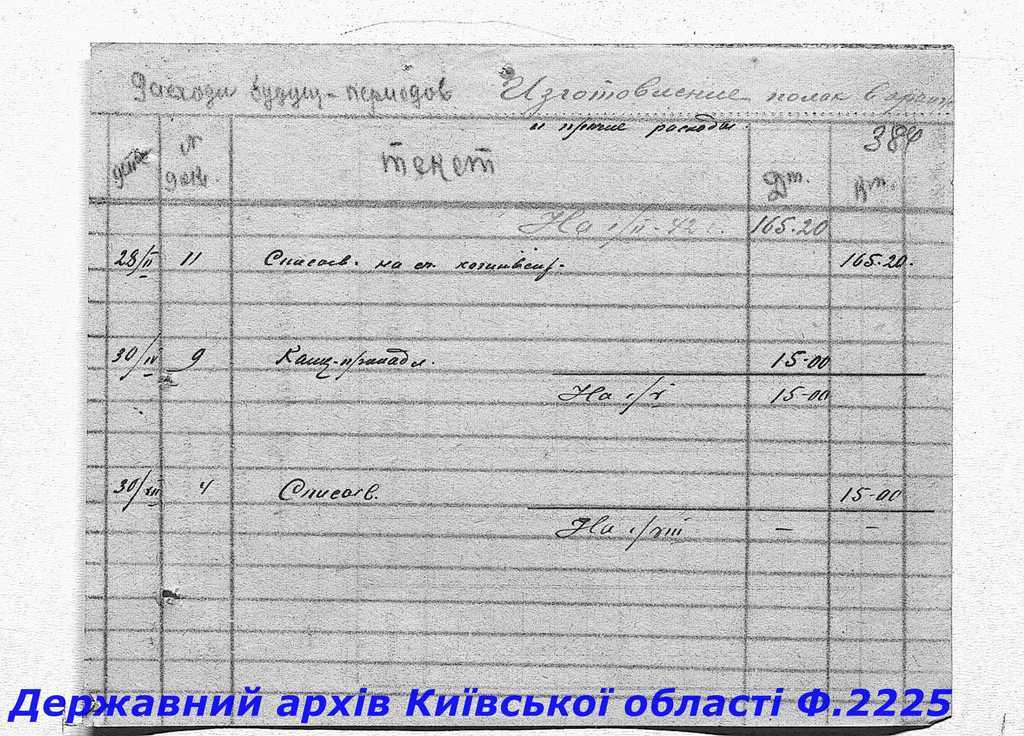 Расходи будущ-периодов Изготовление полок в
и прочие расходы.
384
дата № док. текст Дт. Кт.
На 1/II-42 г. 165-20
28/II 11 Списов. на сч. 165-20.
30/IV 9 15-00
На 1/V 15-00
30/VII 4 Списов. 15-00
На 1/VIII — —
Державний архів Київської області Ф.2225